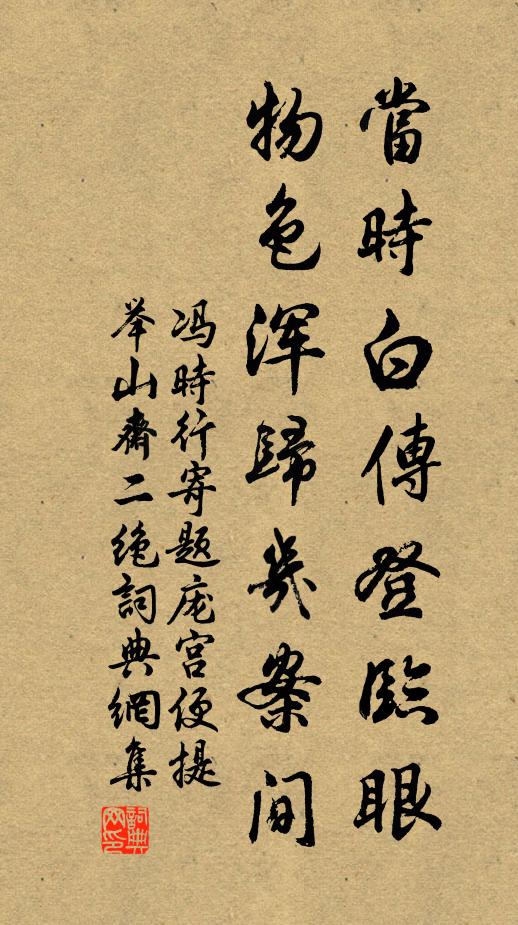 當時白傅登臨眼
物色渾歸幾案间
冯時行寄题庞宫使提
举山齋二绝詞典網集
詞典网印